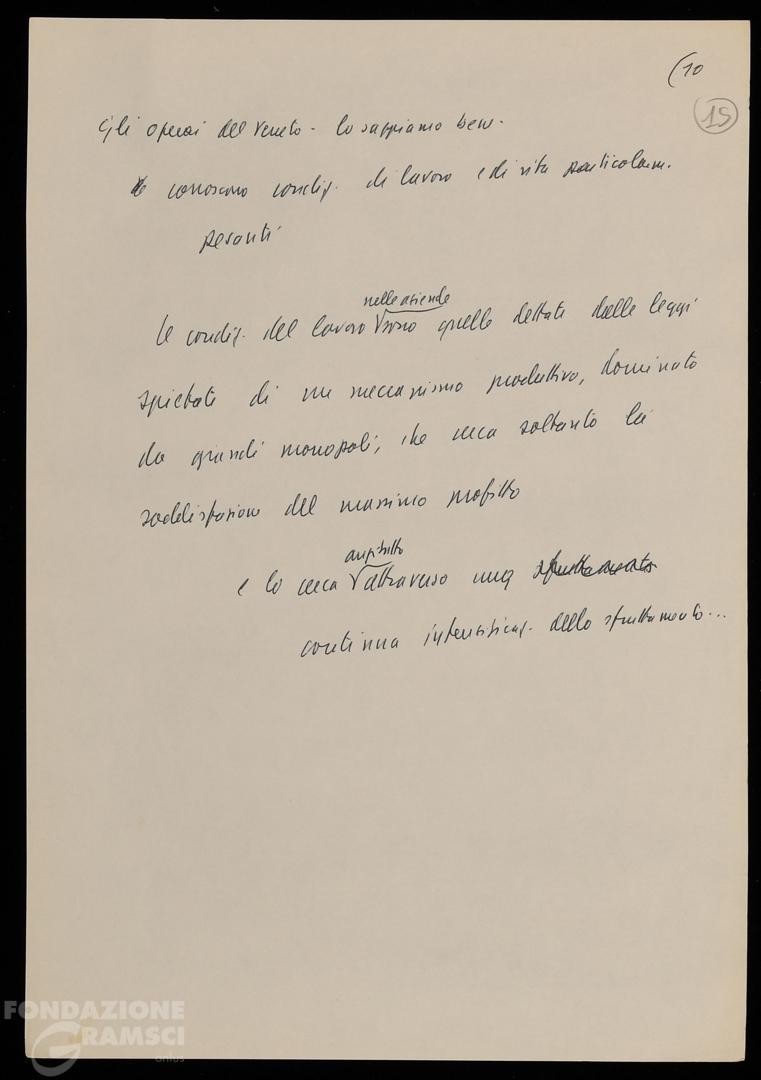 (10
15
Gli operai del Veneto - lo sappiamo bene -
conoscono condiz. di lavoro e di vita particolarm.
pesanti
nelle aziende
le condiz. del lavoro sono quelle dettate dalle leggi
spietate di un meccanismo produttivo, dominato
da grandi monopoli, che cerca soltanto la
soddisfazione del massimo profitto
anzitutto
e lo cerca attraverso una sfruttamento
continua intensificaz. dello sfruttamento...
FONDAZIONE
GRAMSCI
onlus